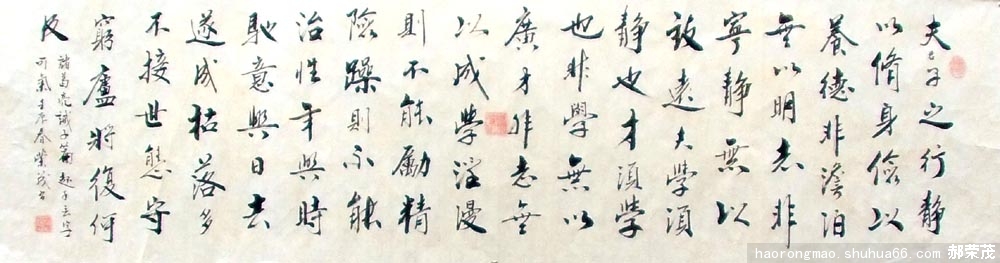 夫君子之行靜
以脩身儉以
養德非澹泊
無以明志非
寧靜無以
致遠夫學須
靜也才須學
也非學無以
廣才非志無
以成學淫漫
則不能勵精
險躁則不能
治性年與時
馳意與日去
遂成枯落多
不接世態守
窮廬將復何
及
諸葛亮誡子篇
壬辰春榮茂書
haorongmao.shuhua66.com 郝荣茂